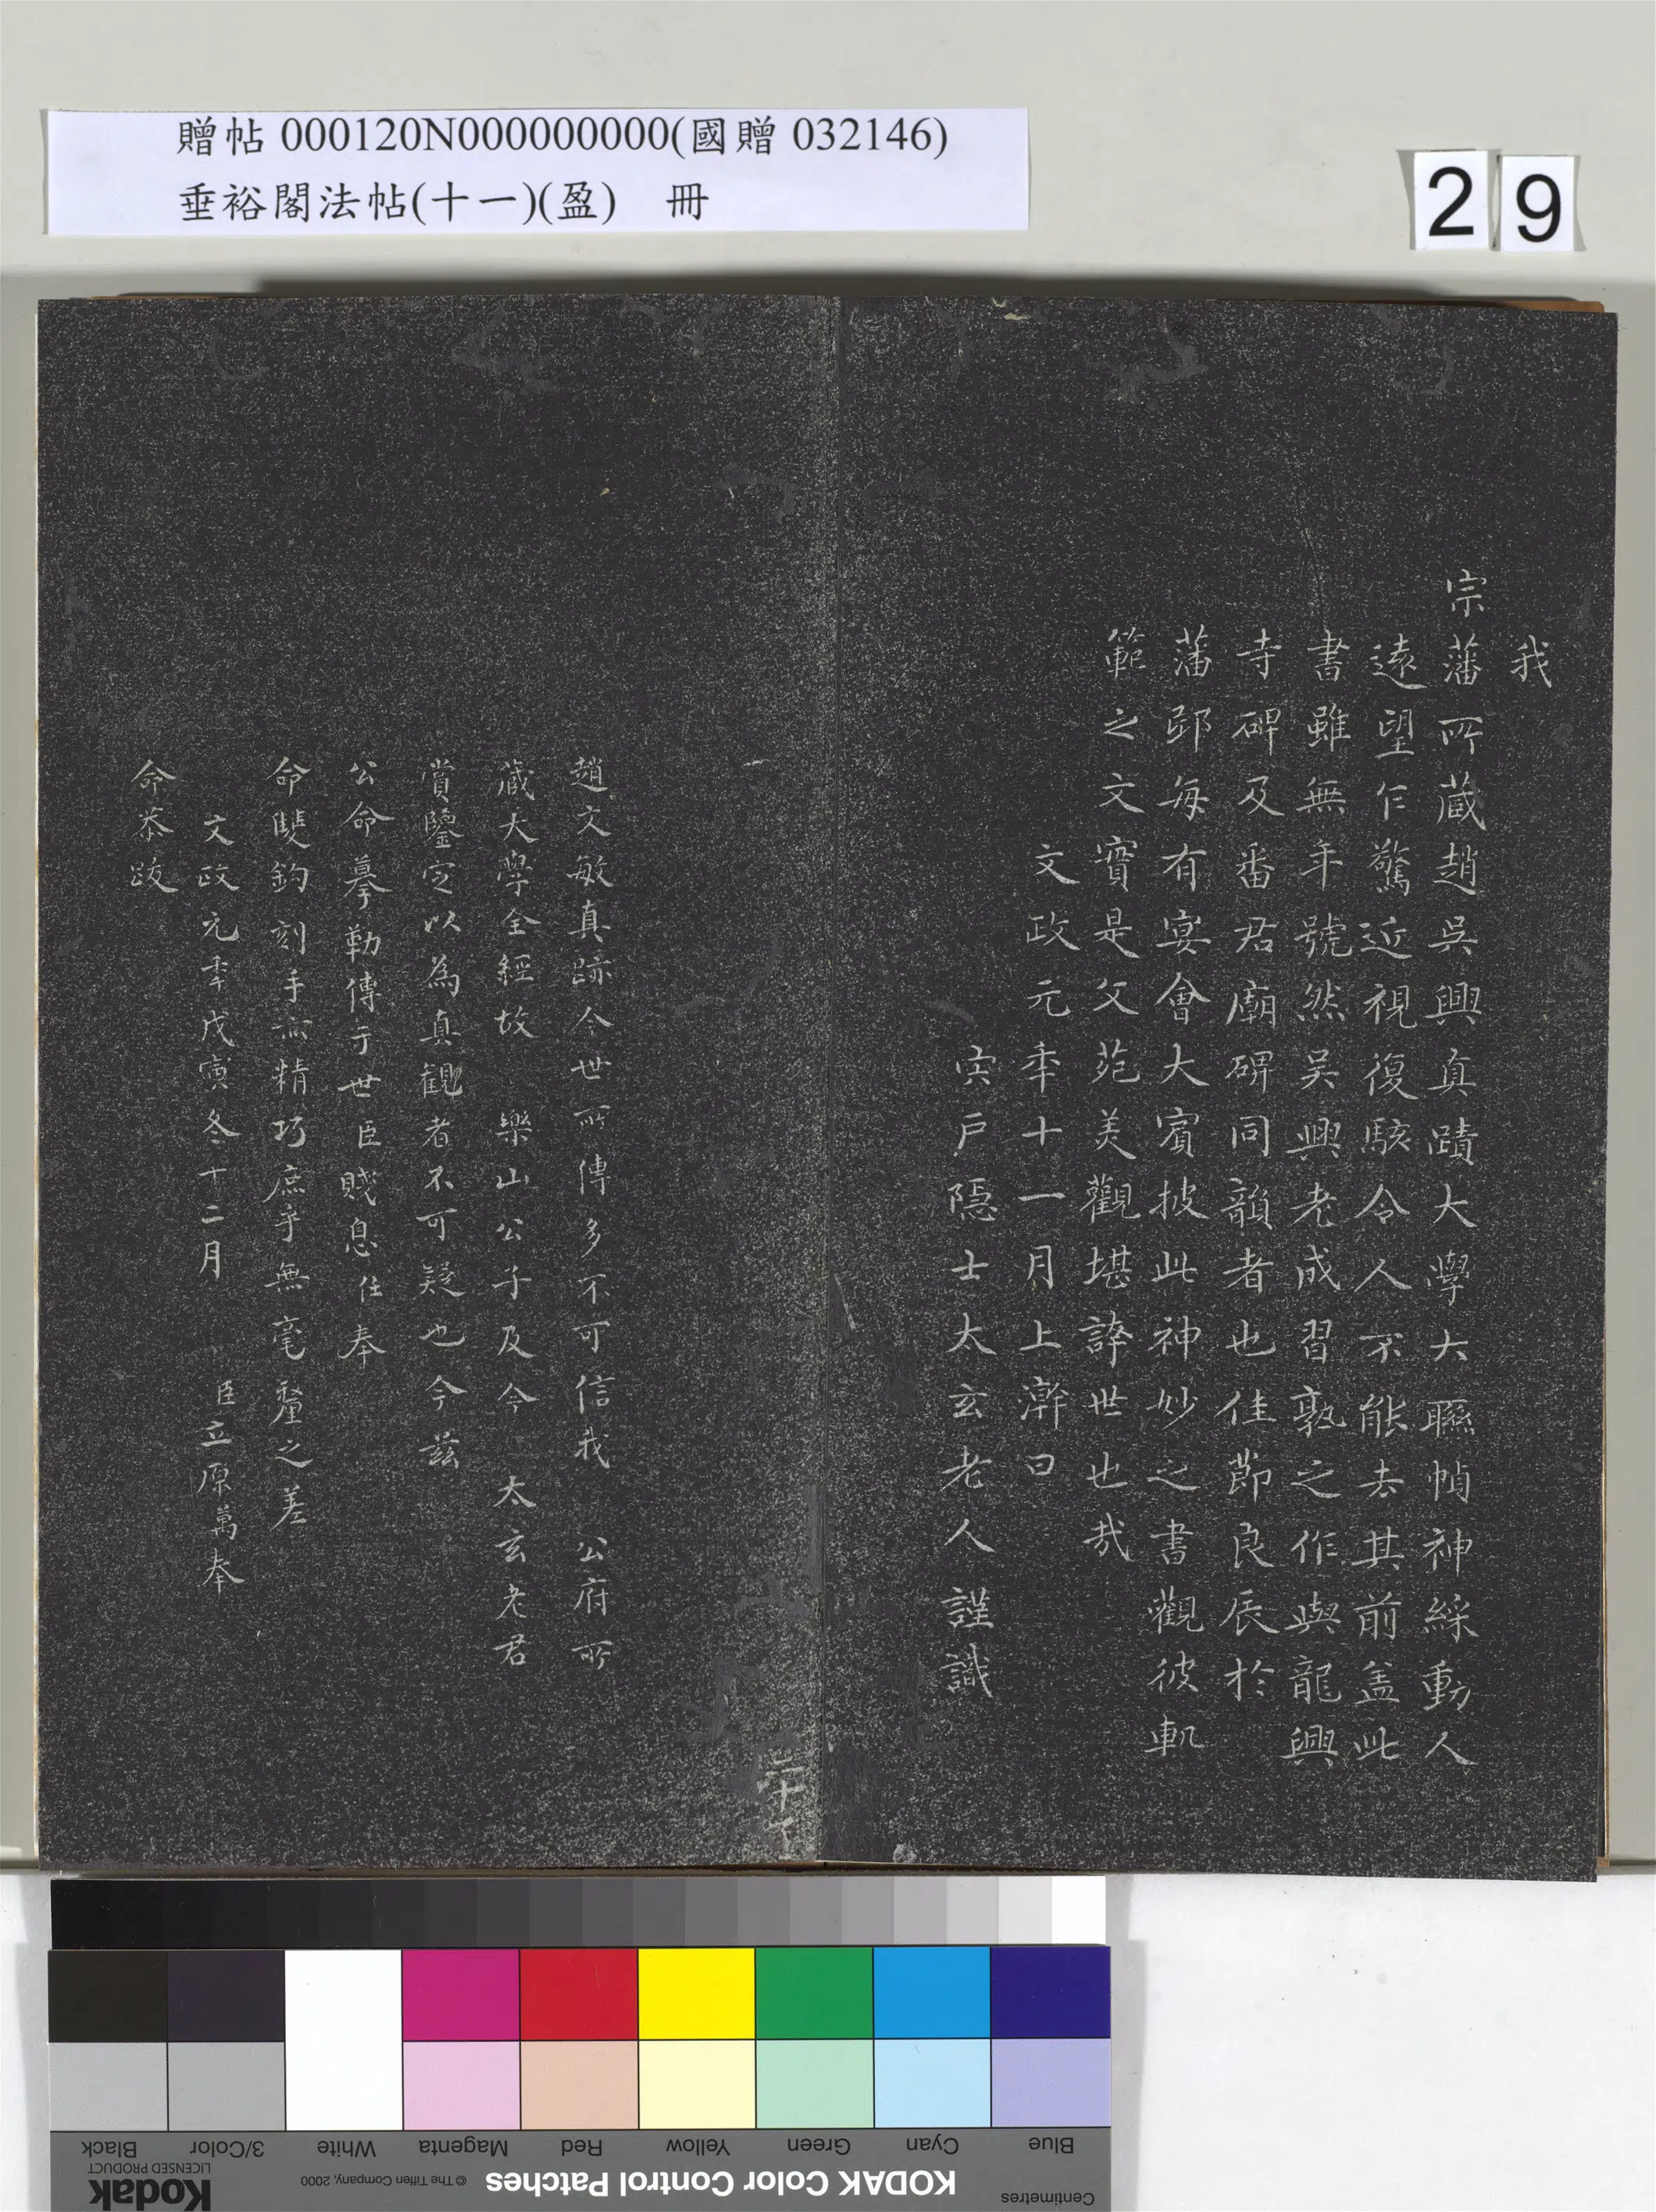 贈帖 000120N000000000(國贈 032146)
垂裕閣法帖(十一)(盈) 冊
29
我
宗藩所蔵趙吳興真蹟大學大聯幀神綵動人
遠望乍驚近視復駭令人不能去其前盖此
書雖無年號然吴興老成習孰之作與龍興
寺碑及番君廟碑同韻者也佳節良辰於
藩邸每有宴會大賓披此神妙之書觀彼軓
範之文寶是父苑美觀堪誇世也哉
文政元年十一月上澣日
宍戶隱士太玄老人 謹識
趙文敏真跡今世所傳多不可信我 公府所
蔵大學全經故 樂山公子及今 太玄老君
賞鑒定以為真觀者不可疑也今茲
公命摹勒傳于世臣賤息任奉
命雙鈎刻手亦精巧庶乎無毫釐之差
文政元年戊寅冬十二月 臣立原萬奉
命恭跋
KODAK Color Control Patches
© The Tiffen Company, 2000
Kodak
LICENSED PRODUCT
Centimetres
Blue
Cyan
Green
Yellow
Red
Magenta
White
3/Color
Black